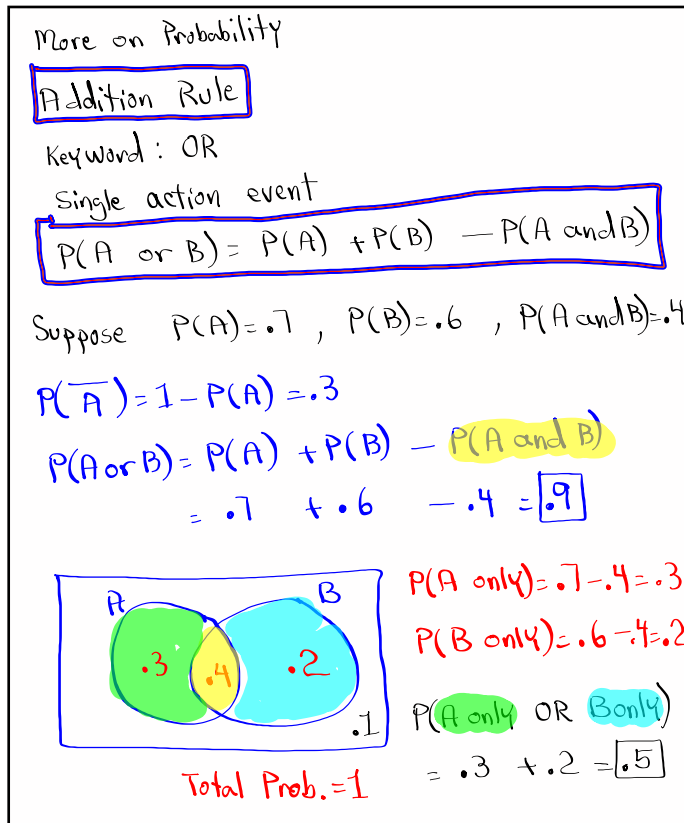 More on Probability
Addition Rule
Keyword: OR
Single action event
P(A or B) = P(A) + P(B) - P(A and B)
Suppose P(A)=.7 , P(B)=.6 , P(A and B)=.4
P(A̅)=1-P(A)=.3
P(A or B)= P(A) + P(B) - P(A and B)
= .7 + .6 - .4 = .9
A B
.3 .4 .2
.1
Total Prob.=1
P(A only)=.7-.4=.3
P(B only)=.6-.4=.2
P(A only OR B only)
= .3 + .2 = .5